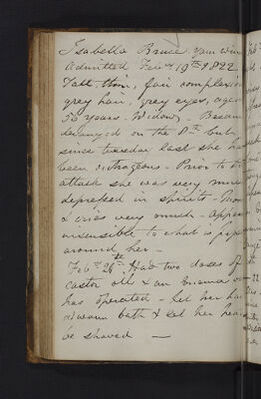 Isabella Bruce
Admitted Feby 19th 1822
Tall, thin, fair complexion
grey hair, grey eyes, aged
50 years. Widow - Became
deranged on the but
since tuesday last she has
been outrageous - Prior to the
attack she was very much
depressed in spirits -
& cries very much - appears
insensible to what is
around her -
Feby 26th Had two doses of
castor oil & an Enema
has operated - let her have
a warm bath & let her head
be shaved -